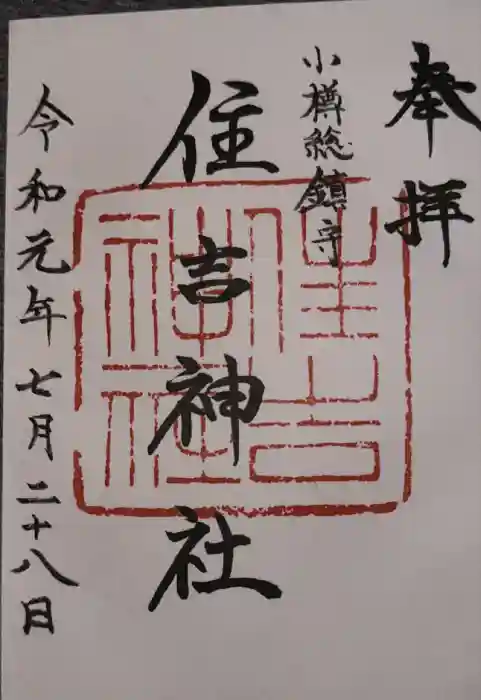 奉拝
小樽総鎮守
住吉神社
住吉神社
令和元年七月二十八日